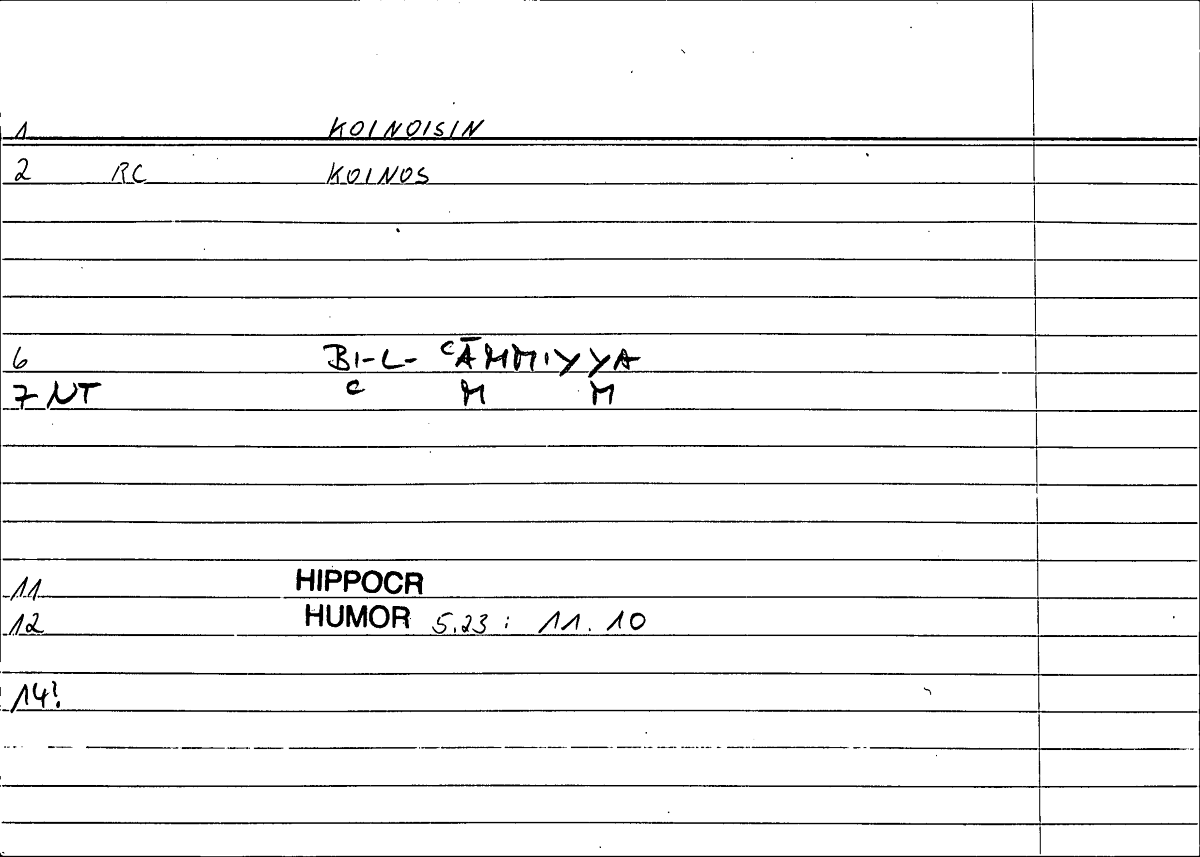 1 KOINOISIN
2 RC KOINOS
6 BI-L- ᶜĀMMIYYA
7 NT ᶜ M M
11 HIPPOCR
12 HUMOR 5.23 : 11.10
14?